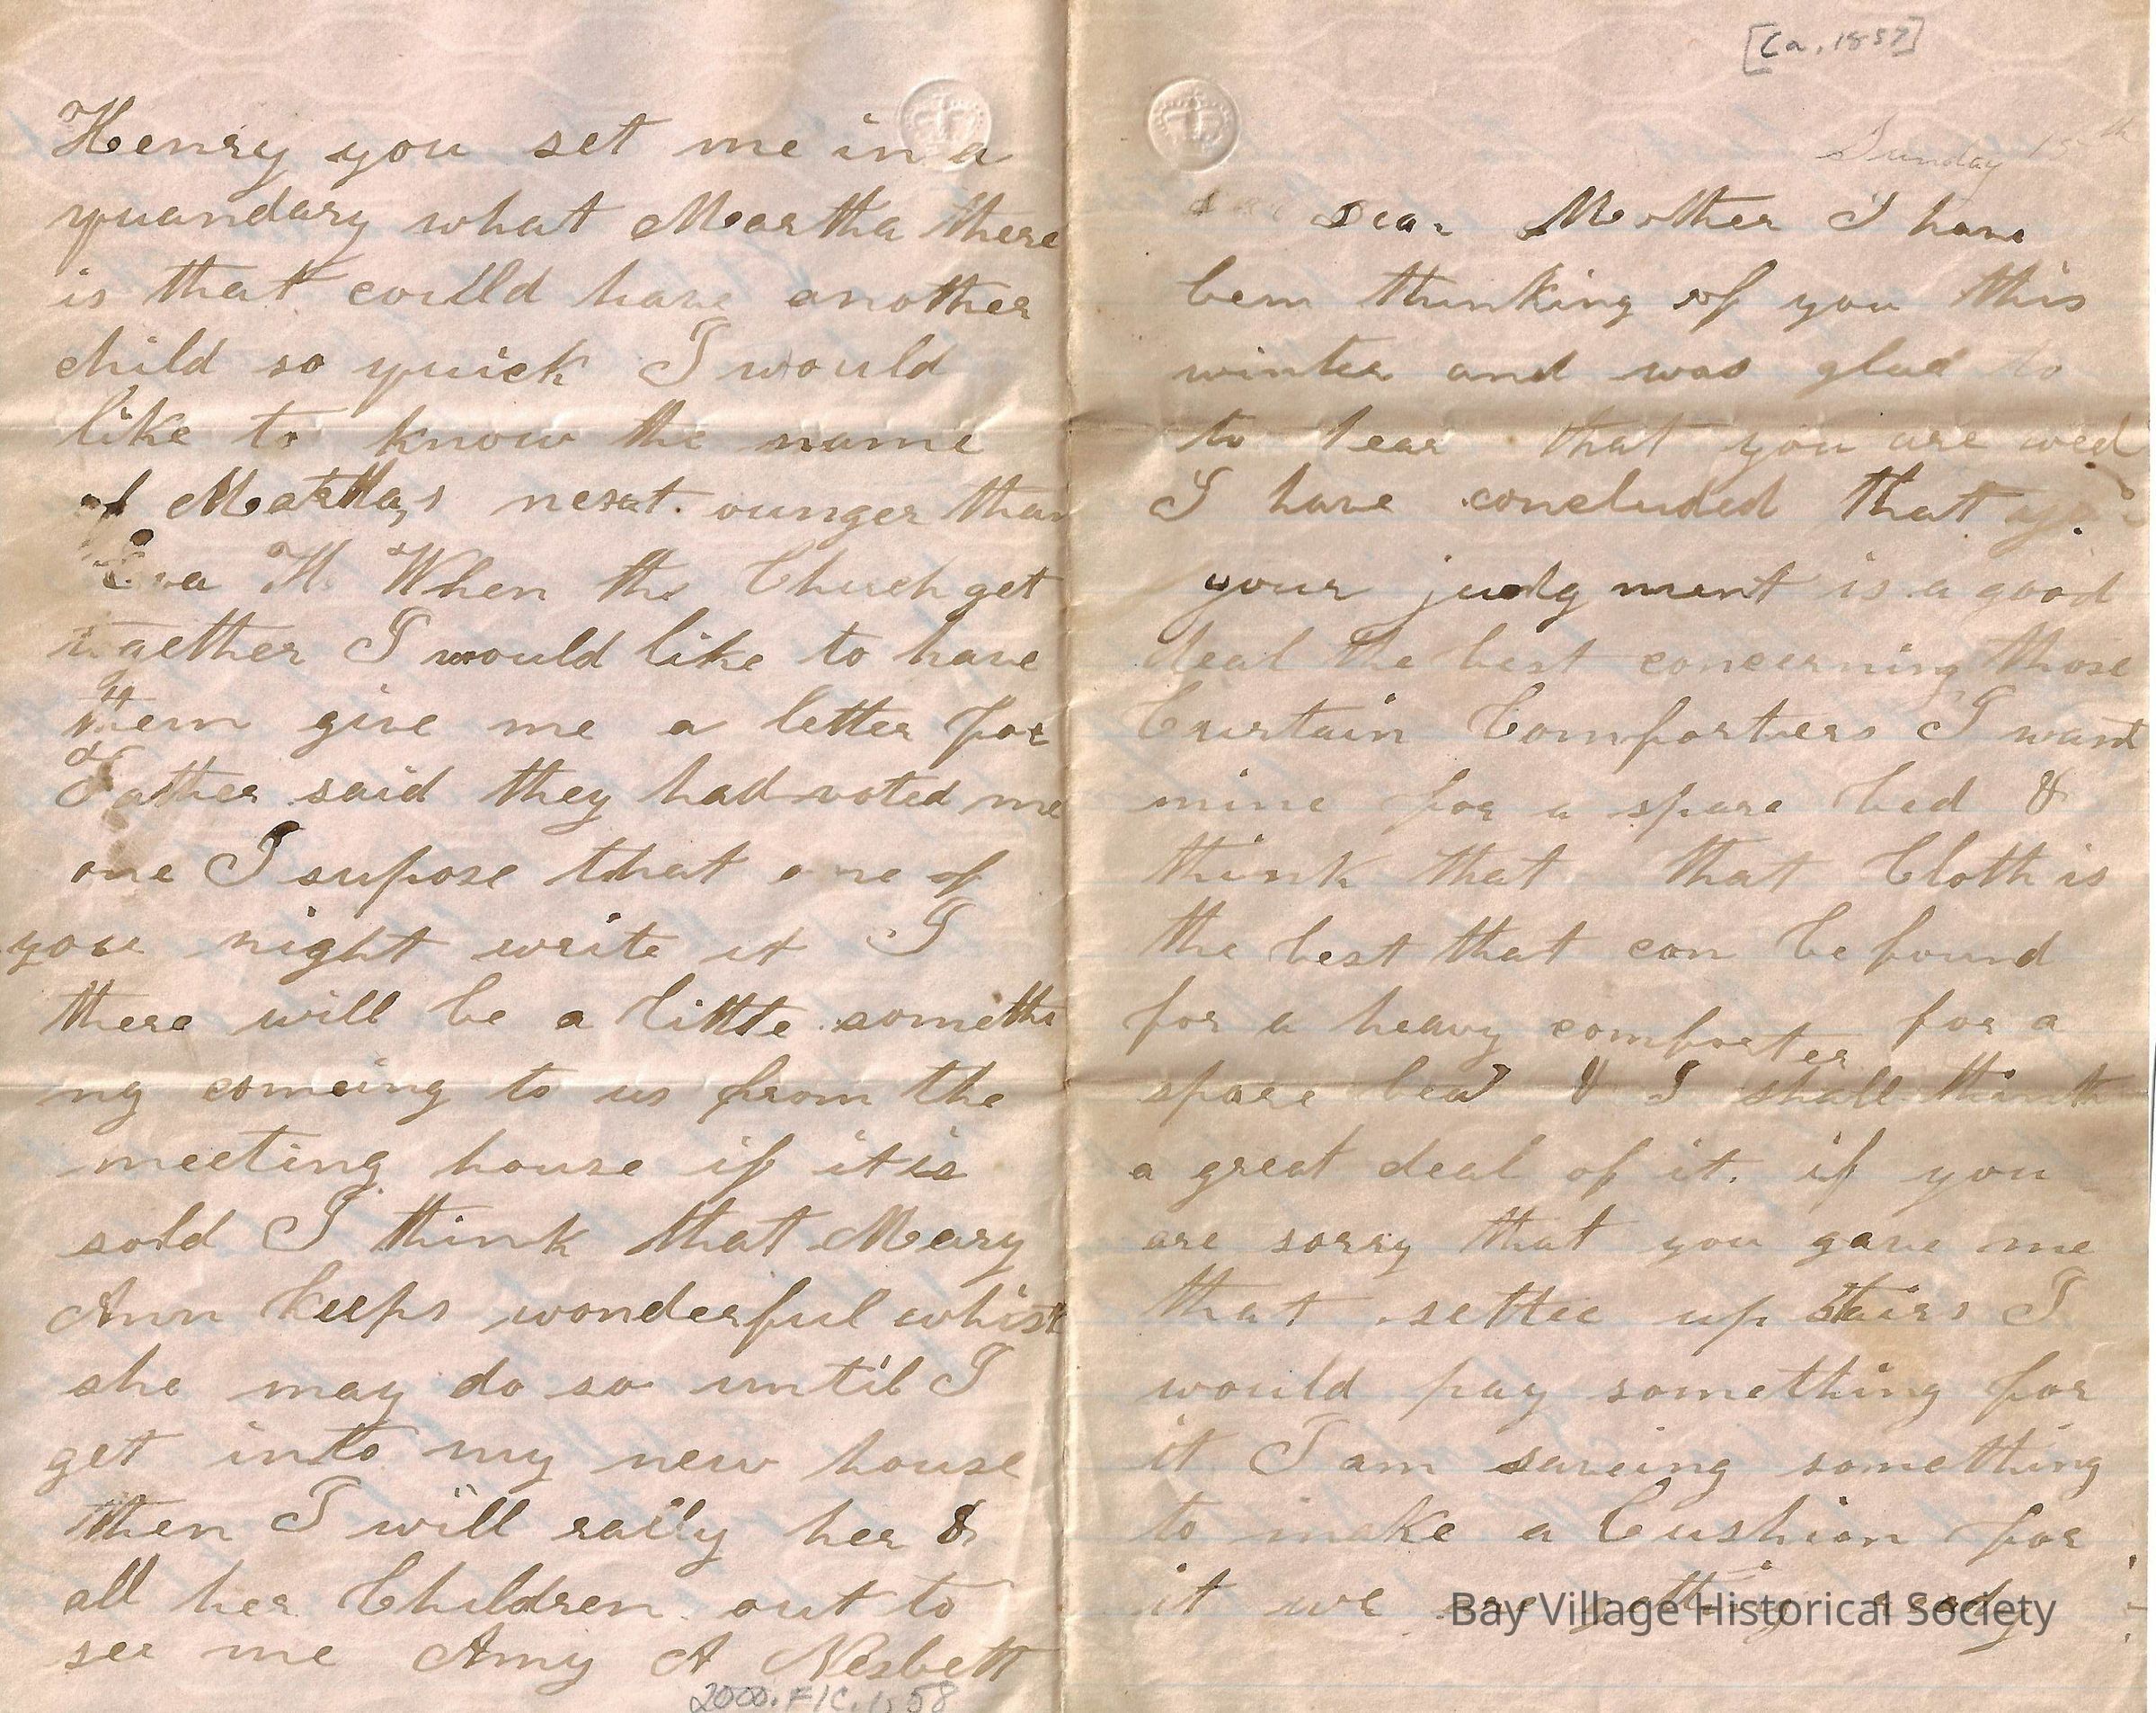 [Ca. 1857]
Sunday 15th
Dear Mother I have
bem thinking of you this
winter and was glad to
to hear that you are well
I have concluded that
your judgment is a good
deal the best concerning those
Curtain Comforters I want
mine for a spare bed &
think that that Cloth is
the best that can be found
for a heavy comforter for a
spare bed & I shall think
a great deal of it. if you
are sorry that you gave me
that settee up stairs I
would pay something for
it I am saveing something
to make a Cushion for
it we are getting ready
Bay Village Historical Society
Henry you set me in a
quandary what Martha there
is that could have another
child so quick I would
like to know the name
of Marthas next ounger than
Eva H. When the Church get
together I would like to have
them give me a letter for
Father said they had voted me
one I supose that one of
you might write it I
there will be a little somethi
ng comeing to us from the
meeting house if it is
sold I think that Mary
Ann keeps wonderful whist
she may do so until I
get into my new house
then I will rally her &
all her Children out to
see me Amy A Nesbett